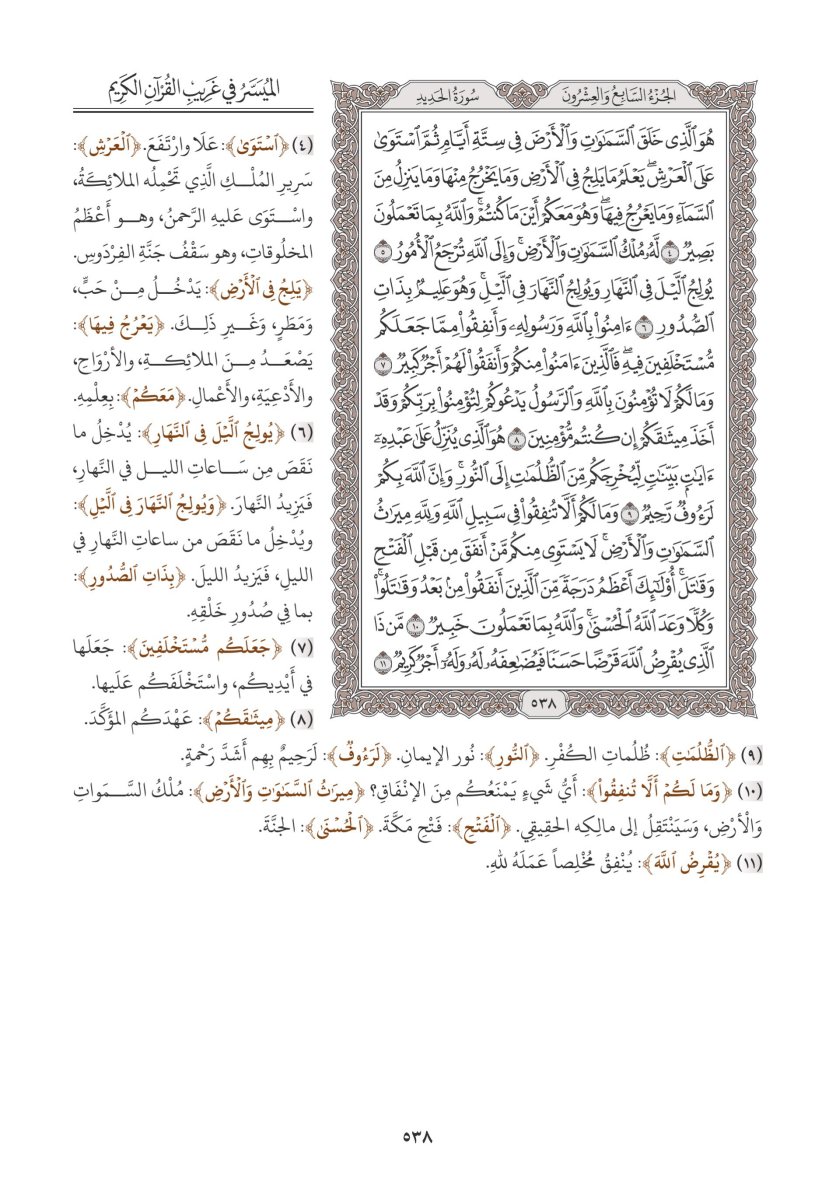 الميسر في غريب القرآن الكريم
الجزء السابع والعشرون
سورة الحديد
هُوَ ٱلَّذِي خَلَقَ ٱلسَّمَٰوَٰتِ وَٱلۡأَرۡضَ فِي سِتَّةِ أَيَّامٖ ثُمَّ ٱسۡتَوَىٰ
عَلَى ٱلۡعَرۡشِۖ يَعۡلَمُ مَا يَلِجُ فِي ٱلۡأَرۡضِ وَمَا يَخۡرُجُ مِنۡهَا وَمَا يَنزِلُ مِنَ
ٱلسَّمَآءِ وَمَا يَعۡرُجُ فِيهَاۖ وَهُوَ مَعَكُمۡ أَيۡنَ مَا كُنتُمۡۚ وَٱللَّهُ بِمَا تَعۡمَلُونَ
بَصِيرٞ ٤ لَّهُۥ مُلۡكُ ٱلسَّمَٰوَٰتِ وَٱلۡأَرۡضِۚ وَإِلَى ٱللَّهِ تُرۡجَعُ ٱلۡأُمُورُ ٥
يُولِجُ ٱلَّيۡلَ فِي ٱلنَّهَارِ وَيُولِجُ ٱلنَّهَارَ فِي ٱلَّيۡلِۚ وَهُوَ عَلِيمُۢ بِذَاتِ
ٱلصُّدُورِ ٦ ءَامِنُواْ بِٱللَّهِ وَرَسُولِهِۦ وَأَنفِقُواْ مِمَّا جَعَلَكُم
مُّسۡتَخۡلَفِينَ فِيهِۖ فَٱلَّذِينَ ءَامَنُواْ مِنكُمۡ وَأَنفَقُواْ لَهُمۡ أَجۡرٞ كَبِيرٞ ٧
وَمَا لَكُمۡ لَا تُؤۡمِنُونَ بِٱللَّهِ وَٱلرَّسُولُ يَدۡعُوكُمۡ لِتُؤۡمِنُواْ بِرَبِّكُمۡ وَقَدۡ
أَخَذَ مِيثَٰقَكُمۡ إِن كُنتُم مُّؤۡمِنِينَ ٨ هُوَ ٱلَّذِي يُنَزِّلُ عَلَىٰ عَبۡدِهِۦٓ
ءَايَٰتِۭ بَيِّنَٰتٖ لِّيُخۡرِجَكُم مِّنَ ٱلظُّلُمَٰتِ إِلَى ٱلنُّورِۚ وَإِنَّ ٱللَّهَ بِكُمۡ
لَرَءُوفٞ رَّحِيمٞ ٩ وَمَا لَكُمۡ أَلَّا تُنفِقُواْ فِي سَبِيلِ ٱللَّهِ وَلِلَّهِ مِيرَٰثُ
ٱلسَّمَٰوَٰتِ وَٱلۡأَرۡضِۚ لَا يَسۡتَوِي مِنكُم مَّنۡ أَنفَقَ مِن قَبۡلِ ٱلۡفَتۡحِ
وَقَٰتَلَۚ أُوْلَٰٓئِكَ أَعۡظَمُ دَرَجَةٗ مِّنَ ٱلَّذِينَ أَنفَقُواْ مِنۢ بَعۡدُ وَقَٰتَلُواْۚ
وَكُلّٗا وَعَدَ ٱللَّهُ ٱلۡحُسۡنَىٰۚ وَٱللَّهُ بِمَا تَعۡمَلُونَ خَبِيرٞ ١٠ مَّن ذَا
ٱلَّذِي يُقۡرِضُ ٱللَّهَ قَرۡضًا حَسَنٗا فَيُضَٰعِفَهُۥ لَهُۥ وَلَهُۥٓ أَجۡرٞ كَرِيمٞ ١١
٥٣٨
(٤) ﴿ٱسۡتَوَىٰ﴾: عَلَا وارْتَفَعَ. ﴿ٱلۡعَرۡشِ﴾:
سَرِيرِ المُلْكِ الَّذِي تَحْمِلُه الملائِكَةُ،
واسْتَوَى عَليهِ الرَّحمنُ، وهو أَعْظَمُ
المخلُوقاتِ، وهو سَقْفُ جَنَّةِ الفِرْدَوسِ.
﴿يَلِجُ فِي ٱلۡأَرۡضِ﴾: يَدْخُلُ مِنْ حَبٍّ،
وَمَطَرٍ، وَغَيرِ ذَلِكَ. ﴿يَعۡرُجُ فِيهَا﴾:
يَصْعَدُ مِنَ الملائِكَةِ، والأرْوَاحِ،
والأَدْعِيَةِ، والأَعْمالِ. ﴿مَعَكُمۡ﴾: بِعِلْمِهِ.
(٦) ﴿يُولِجُ ٱلَّيۡلَ فِي ٱلنَّهَارِ﴾: يُدْخِلُ ما
نَقَصَ مِن سَاعاتِ الليلِ في النَّهارِ،
فَيَزِيدُ النَّهارَ. ﴿وَيُولِجُ ٱلنَّهَارَ فِي ٱلَّيۡلِ﴾:
ويُدْخِلُ ما نَقَصَ من ساعاتِ النَّهارِ في
الليلِ، فَيَزِيدُ الليلَ. ﴿بِذَاتِ ٱلصُّدُورِ﴾:
بما في صُدُورِ خَلْقِهِ.
(٧) ﴿جَعَلَكُم مُّسۡتَخۡلَفِينَ﴾: جَعَلَها
في أَيْدِيكُم، واسْتَخْلَفَكُم عَلَيها.
(٨) ﴿مِيثَٰقَكُمۡ﴾: عَهْدَكُم المؤَكَّدَ.
(٩) ﴿ٱلظُّلُمَٰتِ﴾: ظُلُماتِ الكُفْرِ. ﴿ٱلنُّورِ﴾: نُورِ الإيمانِ. ﴿لَرَءُوفٞ﴾: لَرَحِيمٌ بِهِم أَشَدَّ رَحْمَةٍ.
(١٠) ﴿وَمَا لَكُمۡ أَلَّا تُنفِقُواْ﴾: أَيُّ شَيءٍ يَمْنَعُكُم مِنَ الإنْفَاقِ؟ ﴿مِيرَٰثُ ٱلسَّمَٰوَٰتِ وَٱلۡأَرۡضِ﴾: مُلْكُ السَّمَواتِ
وَالْأَرْضِ، وَسَيَنْتَقِلُ إلى مالِكِه الحقِيقِي. ﴿ٱلۡفَتۡحِ﴾: فَتْحِ مَكَّةَ. ﴿ٱلۡحُسۡنَىٰ﴾: الجنَّةَ.
(١١) ﴿يُقۡرِضُ ٱللَّهَ﴾: يُنْفِقُ مُخْلِصاً عَمَلَهُ للهِ.
٥٣٨